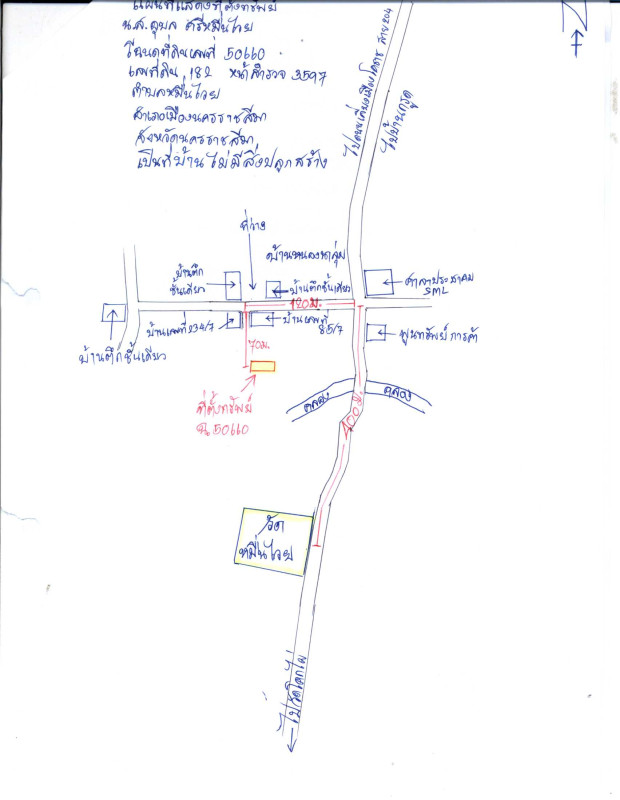 แผนที่แสดงที่ตั้งทรัพย์
น.ส.อุบล ศรีหมื่นไวย
โฉนดที่ดินเลขที่ 50660
เลขที่ดิน 182 หน้าสำรวจ 3597
ตำบลหมื่นไวย
อำเภอเมืองนครราชสีมา
จังหวัดนครราชสีมา
เป็นที่บ้าน ไม่มีสิ่งปลูกสร้าง
ไปถนนเลี่ยงเมืองโคราช สาย 204
ไปบ้านกรูด
ที่ว่าง
บ้านตึก
ชั้นเดียว
บ้านตึกชั้นเดียว
ศาลาประชาคม
SML
120ม.
บ้านเลขที่ 234/7
บ้านเลขที่
85/7
พูนทรัพย์การค้า
บ้านตึกชั้นเดียว
70ม.
ที่ตั้งทรัพย์
ฉ. 50660
คลอง
คลอง
400ม.
วัด
หมื่นไวย
ไปวัดโคกไผ่